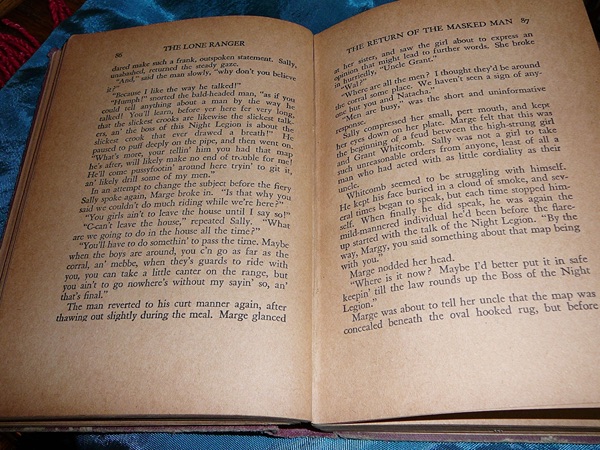 86
THE LONE RANGER
dared make such a frank, outspoken statement. Sally,
unabashed, returned the steady gaze.
"And," said the man slowly, "why don't you believe
it?"
"Because I like the way he talked!"
"Humph!" snorted the bald-headed man, "as if you
could tell anything about a man by the way he
talked! You'll learn, before yer here fer very long,
that the slickest crooks are likewise the slickest talk-
ers, an' the boss of this Night Legion is about the
slickest crook that ever drawed a breath!" He
paused to puff deeply on the pipe, and then went on.
"What's more, your tellin' him you had that map
he's after, will likely make no end of trouble for me!
He'll come pussyfootin' around here tryin' to git it,
an' likely drill some of my men."
In an attempt to change the subject before the fiery
Sally spoke again, Marge broke in. "Is that why you
said we couldn't do much riding while we're here?"
"You girls ain't to leave the house until I say so!"
"C-can't leave the house," repeated Sally. "What
are we going to do in the house all the time?"
"You'll have to do somethin' to pass the time. Maybe
when the boys are around, you c'n go as far as the
corral, an' mebbe, when they's guards to ride with
you, you can take a little canter on the range, but
you ain't to go nowhere's without my sayin' so, an'
that's final."
The man reverted to his curt manner again, after
thawing out slightly during the meal. Marge glanced
THE RETURN OF THE MASKED MAN 87
at her sister, and saw the girl about to express an
opinion that might lead to further words. She broke
in hurriedly, "Uncle Grant."
"Wal?"
"Where are all the men? I thought they'd be around
the corral some place. We haven't seen a sign of any-
one but you and Natacha."
"Men are busy," was the short and uninformative
response.
Sally compressed her small, pert mouth, and kept
her eyes down on her plate. Marge felt that this was
the beginning of a feud between the high-strung girl
and Grant Whitcomb. Sally was not a girl to take
such unreasonable orders from anyone, least of all a
man who had acted with as little cordiality as their
uncle.
Whitcomb seemed to be struggling with himself.
He kept his face buried in a cloud of smoke, and sev-
eral times began to speak, but each time stopped him-
self. When finally he did speak, he was again the
mild-mannered individual he'd been before the flare-
up started with the talk of the Night Legion. "By the
way, Margy, you said something about that map being
with you."
Marge nodded her head.
"Where is it now? Maybe I'd better put it in safe
keepin' till the law rounds up the Boss of the Night
Legion."
Marge was about to tell her uncle that the map was
concealed beneath the oval hooked rug, but before